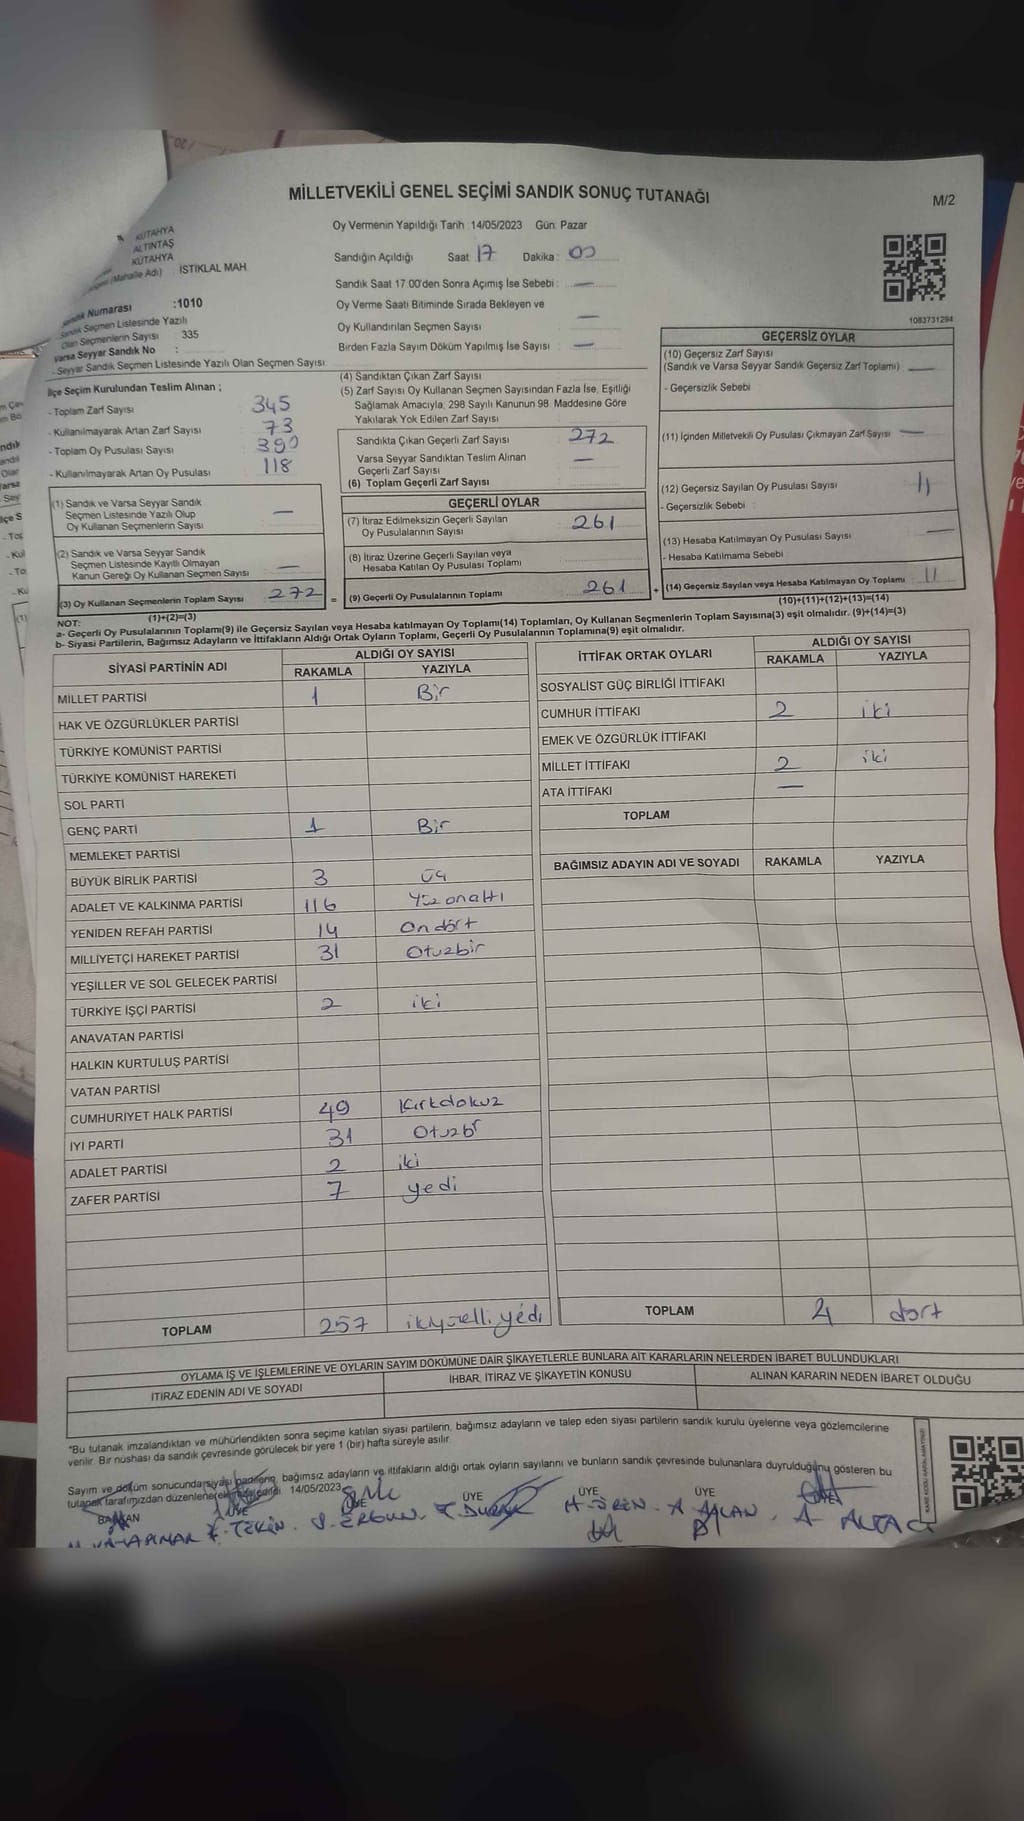 MİLLETVEKİLİ GENEL SEÇİMİ SANDIK SONUÇ TUTANAĞI
M/2
KÜTAHYA
ALTINTAŞ
KÜTAHYA
(Mahalle Adı) : İSTİKLAL MAH.
Sandık Numarası :1010
Sandık Seçmen Listesinde Yazılı
Olan Seçmenlerin Sayısı : 335
Varsa Seyyar Sandık No :
- Seyyar Sandık Seçmen Listesinde Yazılı Olan Seçmen Sayısı :
Oy Vermenin Yapıldığı Tarih :14/05/2023 Gün: Pazar
Sandığın Açıldığı Saat 17 Dakika : 00
Sandık Saat 17.00'den Sonra Açımış İse Sebebi : —
Oy Verme Saati Bitiminde Sırada Bekleyen ve
Oy Kullandırılan Seçmen Sayısı —
Birden Fazla Sayım Döküm Yapılmış İse Sayısı : —
1083731294
İlçe Seçim Kurulundan Teslim Alınan ;
- Toplam Zarf Sayısı 345
- Kullanılmayarak Artan Zarf Sayısı 73
- Toplam Oy Pusulası Sayısı 390
- Kullanılmayarak Artan Oy Pusulası 118
(1) Sandık ve Varsa Seyyar Sandık
Seçmen Listesinde Yazılı Olup
Oy Kullanan Seçmenlerin Sayısı —
(2) Sandık ve Varsa Seyyar Sandık
Seçmen Listesinde Kayıtlı Olmayan
Kanun Gereği Oy Kullanan Seçmen Sayısı —
(3) Oy Kullanan Seçmenlerin Toplam Sayısı 272 =
(1)+(2)=(3)
(4) Sandıktan Çıkan Zarf Sayısı
(5) Zarf Sayısı Oy Kullanan Seçmen Sayısından Fazla İse, Eşitliği
Sağlamak Amacıyla; 298 Sayılı Kanunun 98. Maddesine Göre
Yakılarak Yok Edilen Zarf Sayısı
Sandıkta Çıkan Geçerli Zarf Sayısı 272
Varsa Seyyar Sandıktan Teslim Alınan
Geçerli Zarf Sayısı —
(6) Toplam Geçerli Zarf Sayısı
GEÇERLİ OYLAR
(7) İtiraz Edilmeksizin Geçerli Sayılan
Oy Pusulalarının Sayısı 261
(8) İtiraz Üzerine Geçerli Sayılan veya
Hesaba Katılan Oy Pusulası Toplamı
(9) Geçerli Oy Pusulalarının Toplamı 261 +
GEÇERSİZ OYLAR
(10) Geçersiz Zarf Sayısı
(Sandık ve Varsa Seyyar Sandık Geçersiz Zarf Toplamı) —
- Geçersizlik Sebebi
(11) İçinden Milletvekili Oy Pusulası Çıkmayan Zarf Sayısı —
(12) Geçersiz Sayılan Oy Pusulası Sayısı 11
- Geçersizlik Sebebi :
(13) Hesaba Katılmayan Oy Pusulası Sayısı —
- Hesaba Katılmama Sebebi
(14) Geçersiz Sayılan veya Hesaba Katılmayan Oy Toplamı 11
(10)+(11)+(12)+(13)=(14)
NOT:
a- Geçerli Oy Pusulalarının Toplamı(9) ile Geçersiz Sayılan veya Hesaba katılmayan Oy Toplamı(14) Toplamları, Oy Kullanan Seçmenlerin Toplam Sayısına(3) eşit olmalıdır. (9)+(14)=(3)
b- Siyasi Partilerin, Bağımsız Adayların ve İttifakların Aldığı Ortak Oyların Toplamı, Geçerli Oy Pusulalarının Toplamına(9) eşit olmalıdır.
SİYASİ PARTİNİN ADI ALDIĞI OY SAYISI
RAKAMLA YAZIYLA
MİLLET PARTİSİ 1 Bir
HAK VE ÖZGÜRLÜKLER PARTİSİ
TÜRKİYE KOMÜNİST PARTİSİ
TÜRKİYE KOMÜNİST HAREKETİ
SOL PARTİ
GENÇ PARTİ 1 Bir
MEMLEKET PARTİSİ
BÜYÜK BİRLİK PARTİSİ 3 üç
ADALET VE KALKINMA PARTİSİ 116 Yüzonaltı
YENİDEN REFAH PARTİSİ 14 Ondört
MİLLİYETÇİ HAREKET PARTİSİ 31 Otuzbir
YEŞİLLER VE SOL GELECEK PARTİSİ
TÜRKİYE İŞÇİ PARTİSİ 2 iki
ANAVATAN PARTİSİ
HALKIN KURTULUŞ PARTİSİ
VATAN PARTİSİ
CUMHURİYET HALK PARTİSİ 49 Kırkdokuz
İYİ PARTİ 31 Otuzbr
ADALET PARTİSİ 2 iki
ZAFER PARTİSİ 7 yedi
TOPLAM 257 ikiyüzelli yedi
İTTİFAK ORTAK OYLARI ALDIĞI OY SAYISI
RAKAMLA YAZIYLA
SOSYALİST GÜÇ BİRLİĞİ İTTİFAKI
CUMHUR İTTİFAKI 2 iki
EMEK VE ÖZGÜRLÜK İTTİFAKI
MİLLET İTTİFAKI 2 iki
ATA İTTİFAKI —
TOPLAM
BAĞIMSIZ ADAYIN ADI VE SOYADI RAKAMLA YAZIYLA
TOPLAM 4 dört
OYLAMA İŞ VE İŞLEMLERİNE VE OYLARIN SAYIM DÖKÜMÜNE DAİR ŞİKAYETLERLE BUNLARA AİT KARARLARIN NELERDEN İBARET BULUNDUKLARI
İTİRAZ EDENİN ADI VE SOYADI İHBAR, İTİRAZ VE ŞİKAYETİN KONUSU ALINAN KARARIN NEDEN İBARET OLDUĞU
*Bu tutanak imzalandıktan ve mühürlendikten sonra seçime katılan siyasi partilerin, bağımsız adayların ve talep eden siyasi partilerin sandık kurulu üyelerine veya gözlemcilerine
verilir. Bir nüshası da sandık çevresinde görülecek bir yere 1 (bir) hafta süreyle asılır.
Sayım ve döküm sonucunda siyasi partilerin, bağımsız adayların ve ittifakların aldığı ortak oyların sayılarını ve bunların sandık çevresinde bulunanlara duyrulduğunu gösteren bu
tutanak tarafımızdan düzenlenerek 14/05/2023
BAŞKAN ÜYE ÜYE ÜYE ÜYE ÜYE ÜYE
TEKİN S. ERGUN H. ÖREN A A